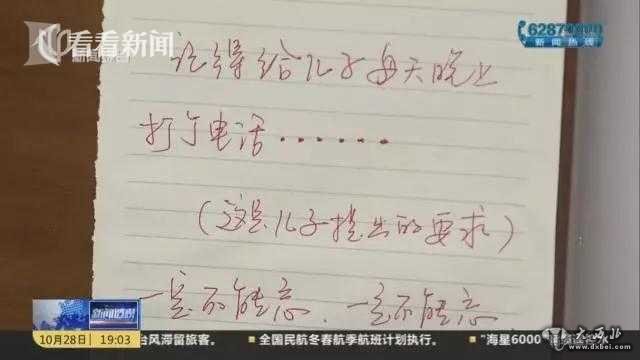 看看新闻
62870000
新闻热线
记得给儿子每天晚上
打个电话······
(这是儿子提出的要求)
一定不能忘、一定不能忘
新闻透视
10月28日 19:03
台风滞留旅客。 ■全国民航冬春航季航班计划执行。 ■"海星6000
大西北
www.dxbei.com